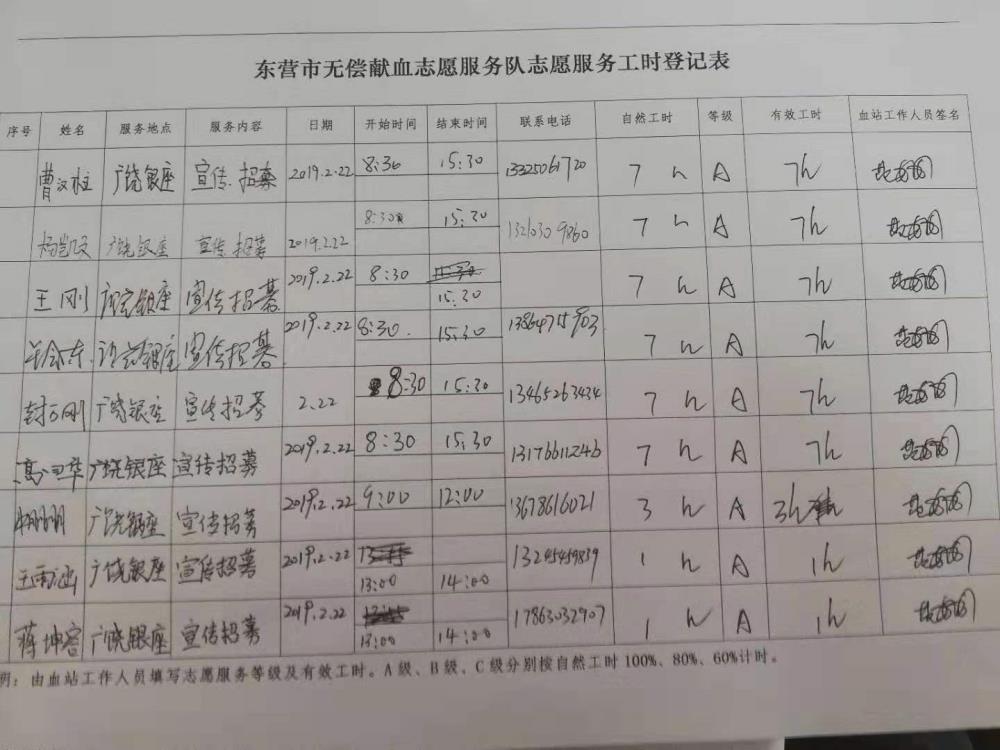 东营市无偿献血志愿服务队志愿服务工时登记表
序号 姓名 服务地点 服务内容 日期 开始时间 结束时间 联系电话 自然工时 等级 有效工时 血站工作人员签名
曹汉柱 广饶银座 宣传.招募 2019.2.22 8:30 15:30 13325061720 7 h A 7h
广饶银座 宣传招募 2019.2.22 8:30 15:30 7 h A 7h
王刚 广饶银座 宣传招募 2019.2.22 8:30 15:30 7 h A 7h
银座 宣传招募 2019.2.22 8:30. 15:30 7 h A 7h
广饶银座 宣传招募 2.22 8:30 15:30 13465263434 7 h A 7h
广饶银座 宣传招募 2019.2.22 8:30 15:30 13176611246 7 h A 7h
广饶银座 宣传招募 2019.2.22 9:00 12:00 13678616021 3 h A 3h
王雨涵 广饶银座 宣传招募 2019.2.22 13:00 14:00 13245459839 1 h A 1h
蒋坤容 广饶银座 宣传招募 2019.2.22 13:00 14:00 17863032907 1 h A 1h
明：由血站工作人员填写志愿服务等级及有效工时。A级、B级、C级分别按自然工时100%、80%、60%计时。